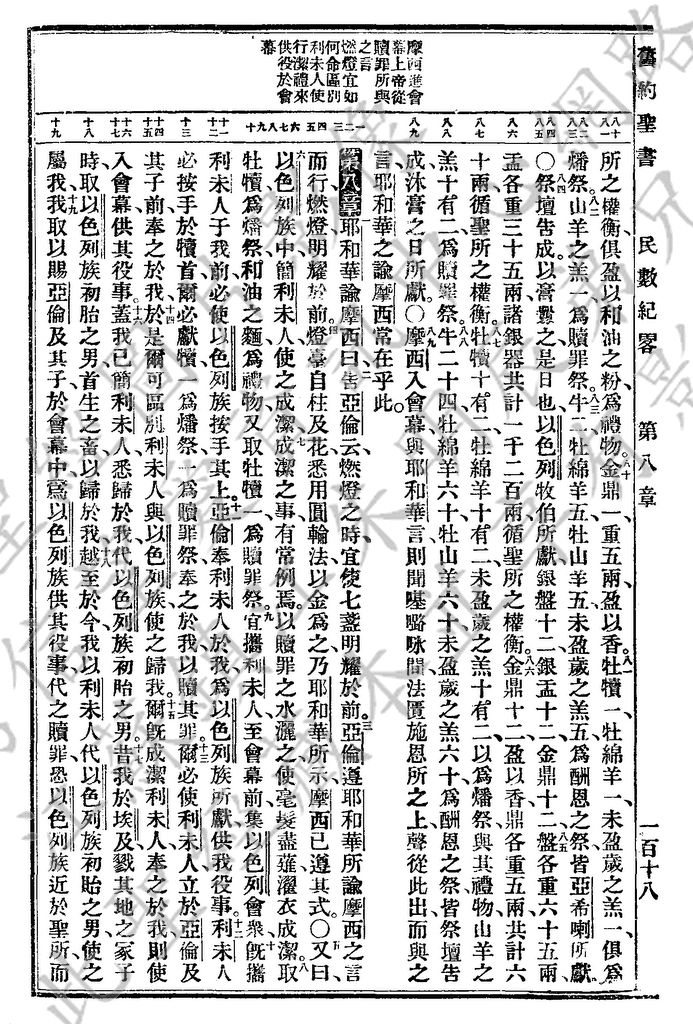 舊約聖書 民數紀略 第八章 一百十八
摩西進會
幕上帝從
贖罪所與
之言
燃燈宜如
何命區別
利未人使
行潔禮來
供役於會
幕
所之權衡俱盈以和油之粉爲禮物金鼎一重五兩盈以香牡犢一牡綿羊一未盈歲之羔一俱爲
燔祭山羊之羔一爲贖罪祭牛二牡綿羊五牡山羊五未盈歲之羔五爲酬恩之祭皆亞希喇所獻
〇祭壇告成以膏釁之是日也以色列牧伯所獻銀盤十二銀盂十二金鼎十二盤各重六十五兩
盂各重三十五兩諸銀器共計一千二百兩循聖所之權衡金鼎十二盈以香鼎各重五兩共計六
十兩循聖所之權衡牡犢十有二牡綿羊十有二未盈歲之羔十有二以爲燔祭與其禮物山羊之
羔十有二爲贖罪祭牛二十四牡綿羊六十牡山羊六十未盈歲之羔六十爲酬恩之祭皆祭壇告
成沐膏之日所獻〇摩西入會幕與耶和華言則聞𠸄嚧㖇間法匱施恩所之上聲從此出而與之
言耶和華之諭摩西常在乎此
第八章 耶和華諭摩西曰告亞倫云燃燈之時宜使七盞明耀於前亞倫遵耶和華所諭摩西之言
而行燃燈明耀於前燈臺自柱及花悉用圓輪法以金爲之乃耶和華所示摩西已遵其式〇又曰
以色列族中簡利未人使之成潔成潔之事有常例焉以贖罪之水灑之使毫髮盡薙濯衣成潔取
牡犢爲燔祭和油之麵爲禮物又取牡犢一爲贖罪祭宜攜利未人至會幕前集以色列會衆旣攜
利未人于我前必使以色列族按手其上亞倫奉利未人於我爲以色列族所獻供我役事利未人
必按手於犢首爾必獻犢一爲燔祭一爲贖罪祭奉之於我以贖其罪爾必使利未人立於亞倫及
其子前奉之於我於是爾可區別利未人與以色列族使之歸我爾旣成潔利未人奉之於我則使
入會幕供其役事蓋我已簡利未人悉歸於我代以色列族初胎之男昔我於埃及戮其地之冢子
時取以色列族初胎之男首生之畜以歸於我越至於今我以利未人代以色列族初胎之男使之
屬我我取以賜亞倫及其子於會幕中爲以色列族供其役事代之贖罪恐以色列族近於聖所而